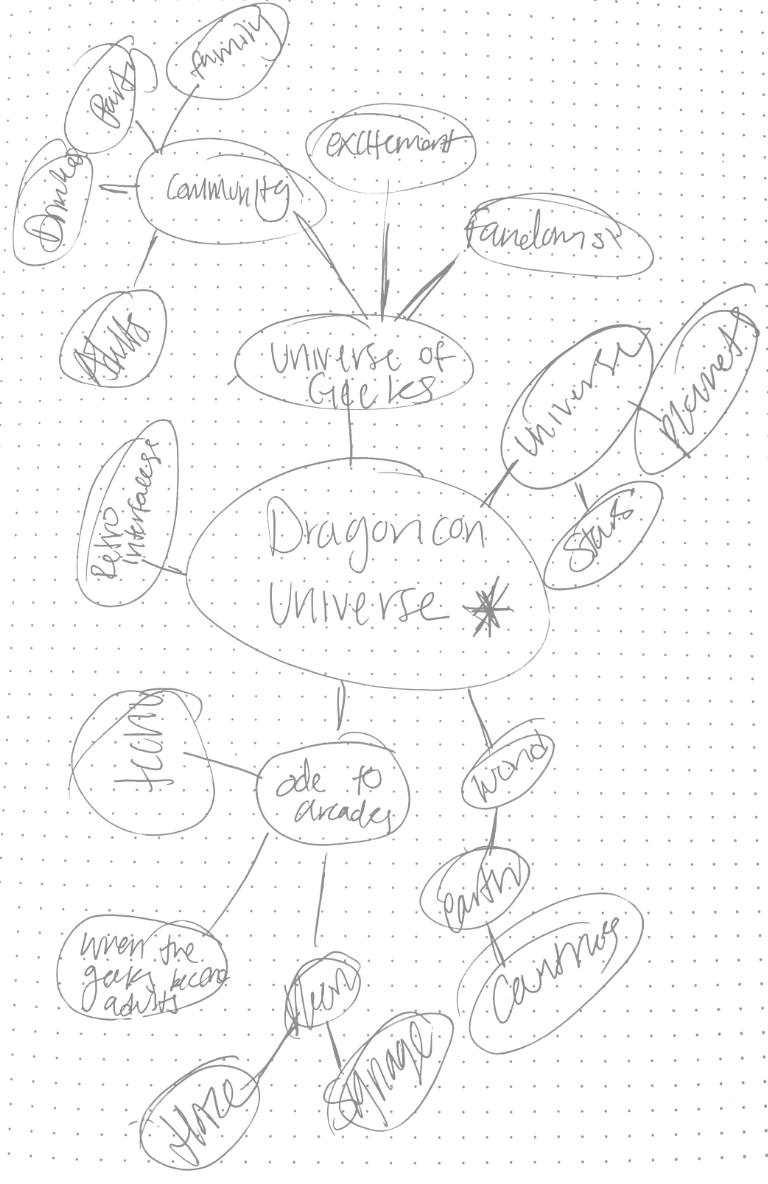 Family
Party
Drinks
Community
Adults
excitement
Fandoms
Universe of
Geeks
Universe
Planets
Stars
Retro
interfaces
Dragoncon
Universe *
ode to
arcades
World
earth
when the
geeks become
adults
Neon
Haze
Signage